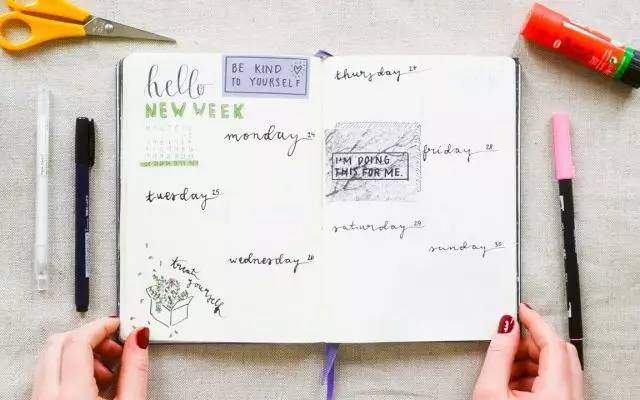 hello
NEW WEEK
BE KIND
TO YOURSELF
monday 24
tuesday 25
wednesday 26
treat
yourself
thursday 27
friday 28
I'M DOING
THIS FOR ME.
saturday 29
sunday 30